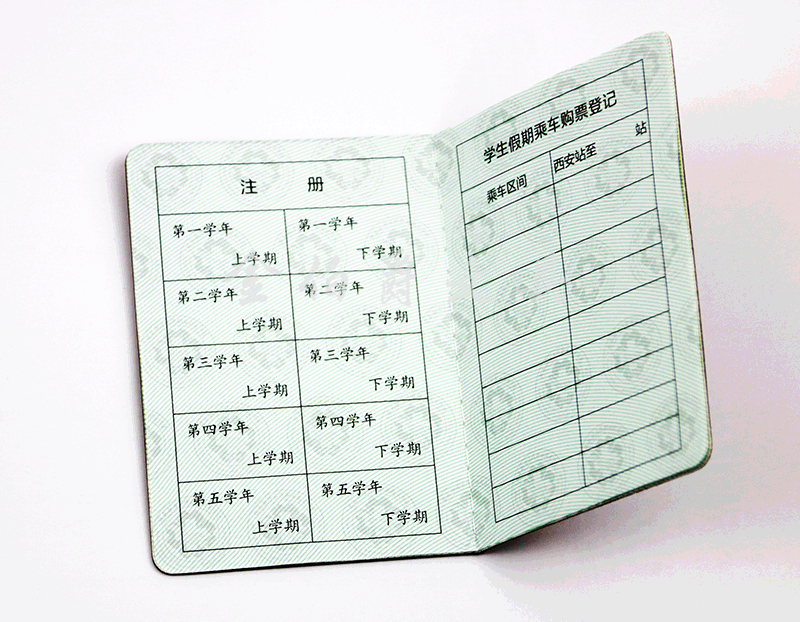 注 册
第一学年 第一学年
上学期 下学期
第二学年 第二学年
上学期 下学期
第三学年 第三学年
上学期 下学期
第四学年 第四学年
上学期 下学期
第五学年 第五学年
上学期 下学期
学生假期乘车购票登记
乘车区间 西安站至 站